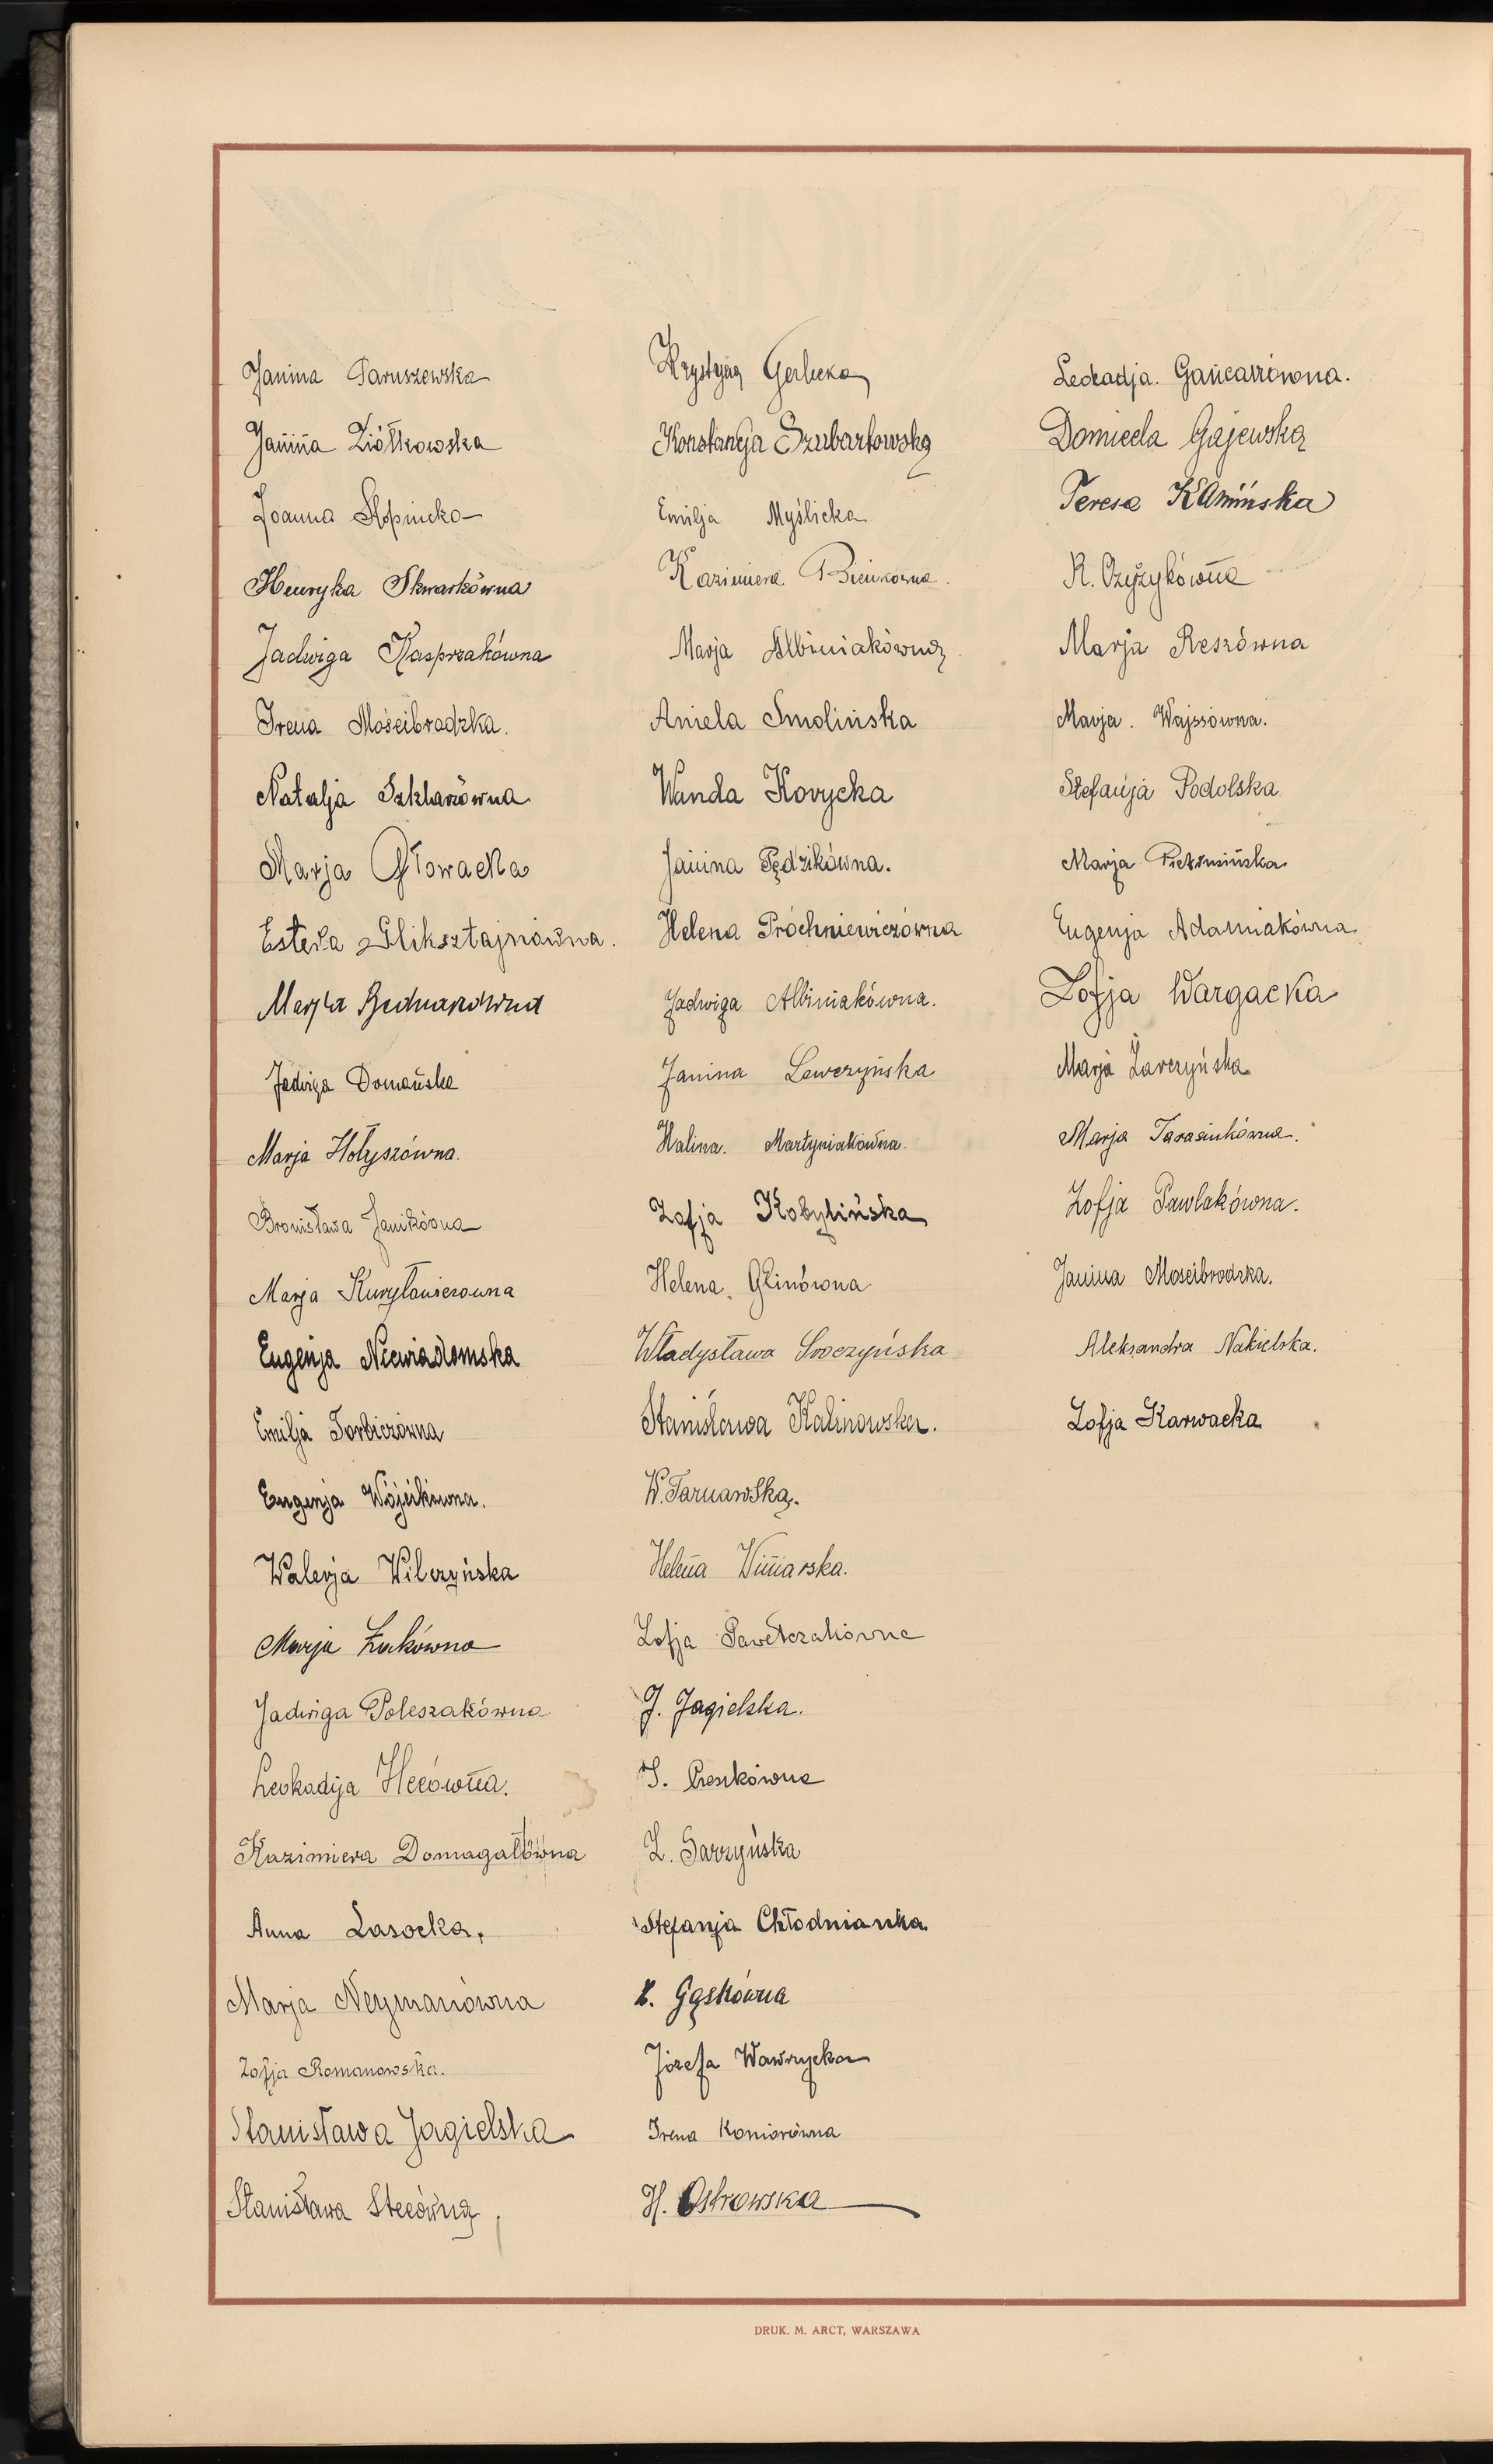 Janina Paruszewska
Janina Ziółkowska
Joanna
Henryka Skwarkówna
Jadwiga Kasprzakówna
Irena Mościbrodzka.
Natalja Szklarzówna
Marja Głowacka
Estera Gliksztajnówna.
Marja Bednarzówna
Jadwiga Domańska
Marja Hołyszówna.
Bronisława Janikówna
Marja Kuryłowiczówna
Eugenja Niewiadomska
Emilja Torbiczówna
Eugenja Wójcikówna.
Walerja Wilczyńska
Marja Żukówna
Jadwiga Poleszakówna
Leokadija Hecówna.
Kazimiera Domagałówna
Anna Lasocka.
Marja Neymanówna
Zofja Romanowska.
Stanisława Jagielska
Stanisława Stecówna
Krystyna Gerlicka
Konstancja Szubartowska
Emilja Myślicka
Kazimiera Bieńkówna.
Marja Albiniakówna
Aniela Smolińska
Wanda Korycka
Janina Pędzikówna.
Helena Próchniewiczówna
Jadwiga Albiniakówna.
Janina Lewczyńska
Halina. Martyniakówna.
Zofja Kobylińska
Helena. Glinówna
Władysława Soczyńska
Stanisława Kalinowska.
W. Tarnawska.
Helena Winiarska.
Zofja Pawełczakówna
J. Jagielska.
J.
Z. Sarzyńska
Stefanja Chłodnianka
Z. Gąskówna
Józefa Wawrzycka
Irena Koniorówna
H. Ostrowska
Leokadja. Gańcarzówna.
Domicela Gajewska
Teresa Kamińska
R. Czyżykówna
Marja Reszówna
Marja. Wajssówna.
Stefanja Podolska
Marja
Eugenja Adamiakówna
Zofja Wargacka
Marja Zarczyńska
Marja Tarasiukówna.
Zofja Pawlakówna.
Janina Mościbrodzka.
Aleksandra Nakielska.
Zofja Karwacka
DRUK. M. ARCT, WARSZAWA